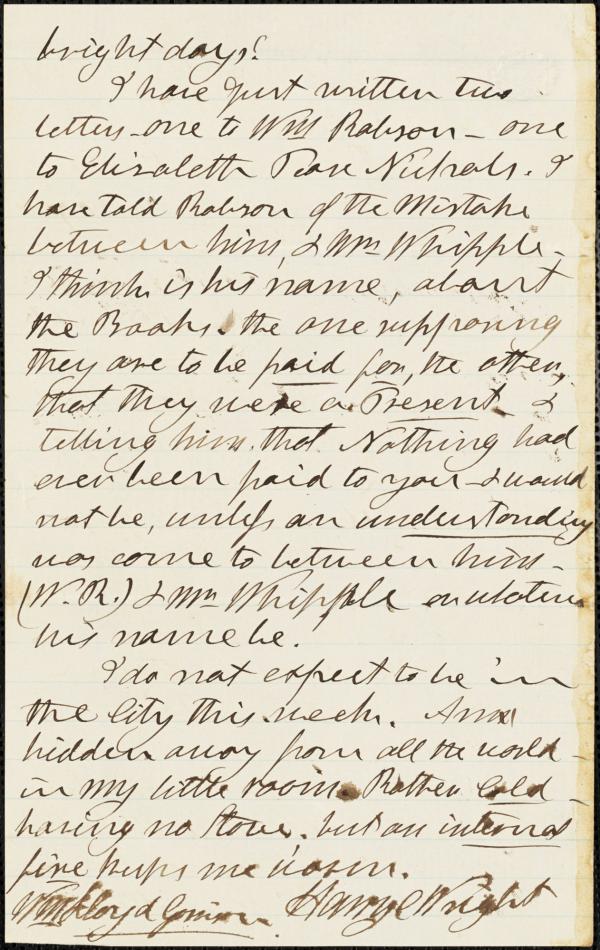 bright days!
I have just written two
letters - one to Wm Rabson - one
to Elizabeth Pease Nichols. I
have told Rabson of the Mistake
between him, & Mr Whipple -
I think is his name, about
the Books. the one supposing
they are to be paid for, the other,
that they were a Present &
telling him that Nothing had
ever been paid to you - & would
not be, unless an understanding
was come to between him -
(W. R.) & Mr Whipple or whatever
his name be.
I do not expect to be in
the City this week. Am
hidden away from all the world -
in my little room. Rather Cold -
having no Stove. but an internal
fire keeps me warm.
Wm Lloyd Garrison. Henry C Wright